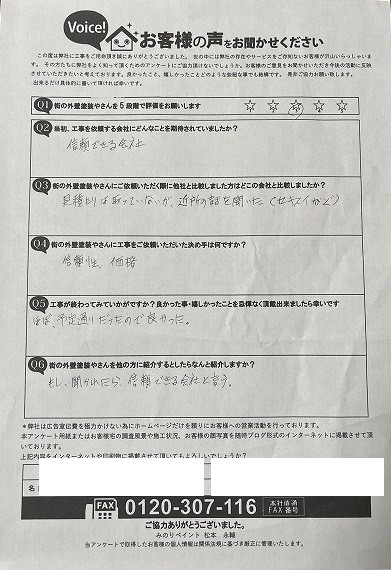 Voice!
お客様の声をお聞かせください
この度は弊社に工事をご用命頂き誠にありがとうございました。世の中には弊社の存在やサービスをご存知ないお客様が沢山いらっしゃいます。その方たちもより良く知って頂くためのアンケートにご協力頂けないでしょうか。お客様のご意見をお聞かせいただき今後の活動に反映させていただきたいと考えております。良かったこと、嬉しかったことどのような些細な事でも結構です。是非ご協力お願い致します。
出来るだけ具体的に書いて頂ければ幸いです。
Q1 街の外壁塗装やさんを5段階で評価をお願いします ☆ ☆ ☆ ☆ ☆
Q2 当初、工事を依頼する会社にどんなことを期待されていましたか?
信頼できる会社
Q3 街の外壁塗装やさんにご依頼いただく際に他社と比較しました方はどこの会社と比較しましたか?
見積もりは取っていないが、近所の話を聞いた(セキスイかど)
Q4 街の外壁塗装やさんに工事をご依頼いただいた決め手は何ですか?
信頼性、価格
Q5 工事が終わってみていかがですか?良かった事・嬉しかったことを忌憚なく頂戴出来ましたら幸いです
ほぼ、予定通りだったので良かった。
Q6 街の外壁塗装やさんを他の方に紹介するとしたらなんと紹介しますか?
もし、聞かれたら、信頼できる会社と言う。
*弊社は広告宣伝費を極力かけない為にホームページだけを頼りにお客様への営業活動を行っております。
本アンケート用紙またはお客様宅の調査風景や施工状況、お客様の顔写真を随時ブログ形式のインターネットに掲載させて頂いております。
上記内容をインターネットや印刷物に掲載させて頂いてもよろしいでしょうか?
名
FAX 0120-307-116 本社直通 FAX番号
ご協力ありがとうございました。
みのりペイント 松本 永輔
当アンケートで取得したお客様の個人情報は関係法規に基づき厳正に管理いたします。